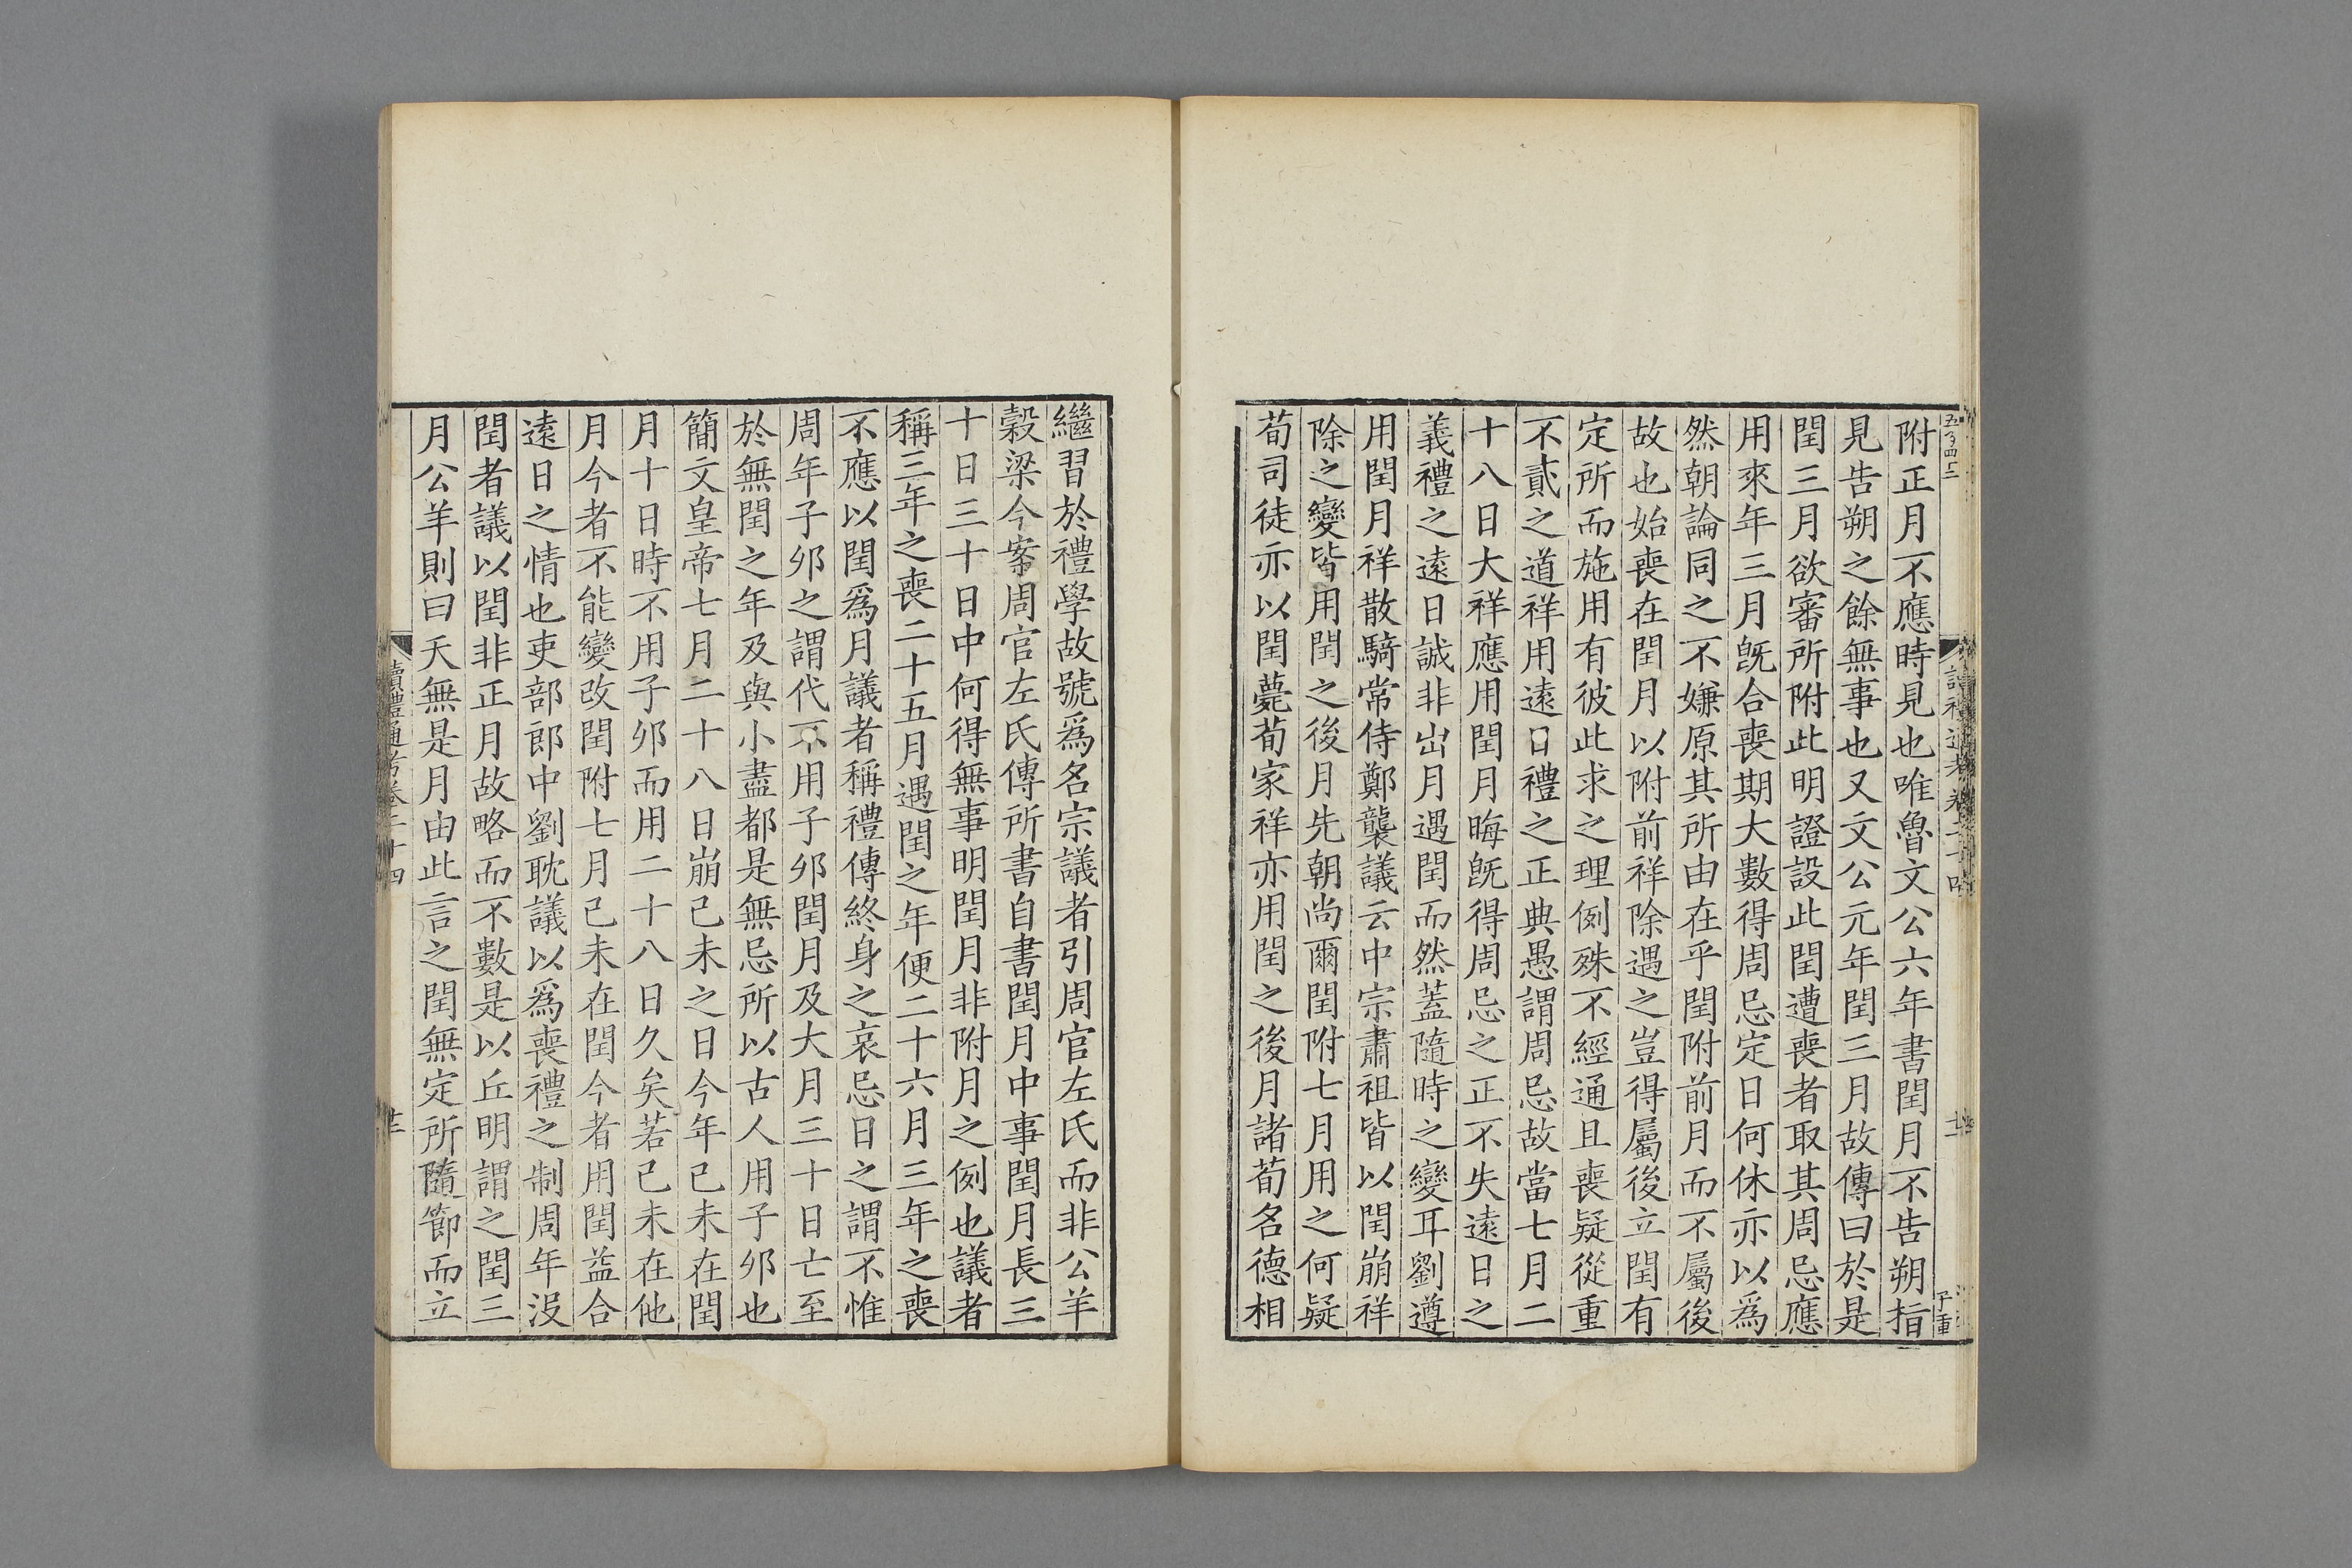 附正月不應時見也唯魯文公六年書閏月不告朔指
見告朔之餘無事也又文公元年閏三月故傳曰於是
閏三月欲審所附此明證設此閏遭喪者取其周忌應
用來年三月旣合喪期大數得周忌定日何休亦以爲
然朝論同之不嫌原其所由在乎閏附前月而不屬後
故也始喪在閏月以附前祥除遇之豈得屬後立閏有
定所而施用有彼此求之理例殊不經通且喪疑從重
不貳之道祥用遠日禮之正典愚謂周忌故當七月二
十八日大祥應用閏月晦旣得周忌之正不失遠日之
義禮之遠日誠非出月遇閏而然蓋隨時之變耳劉遵
用閏月祥散騎常侍鄭襲議云中宗肅祖皆以閏崩祥
除之變皆用閏之後月先朝尚爾閏附七月用之何疑
荀司徒亦以閏薨荀家祥亦用閏之後月諸荀名德相
繼習於禮學故號爲名宗議者引周官左氏而非公羊
穀梁今案周官左氏傳所書自書閏月中事閏月長三
十日三十日中何得無事明閏月非附月之例也議者
稱三年之喪二十五月遇閏之年便二十六月三年之喪
不應以閏爲月議者稱禮傳終身之哀忌日之謂不惟
周年子卯之謂代不用子卯閏月及大月三十日亡至
於無閏之年及與小盡都是無忌所以古人用子卯也
簡文皇帝七月二十八日崩己未之日今年己未在閏
月十日時不用子卯而用二十八日久矣若己未在他
月今者不能變改閏附七月己未在閏今者用閏益合
遠日之情也吏部郎中劉耽議以爲喪禮之制周年沒
閏者議以閏非正月故略而不數是以丘明謂之閏三
月公羊則曰天無是月由此言之閏無定所隨節而立
讀禮通考卷二十四